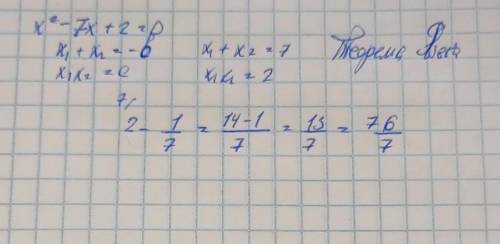 x² - 7x + 2 = 0
x₁ + x₂ = -b x₁ + x₂ = 7 Теорема Виета
x₁x₂ = c x₁x₂ = 2
7/
2 - 1/7 = 14-1/7 = 13/7 = 76/7